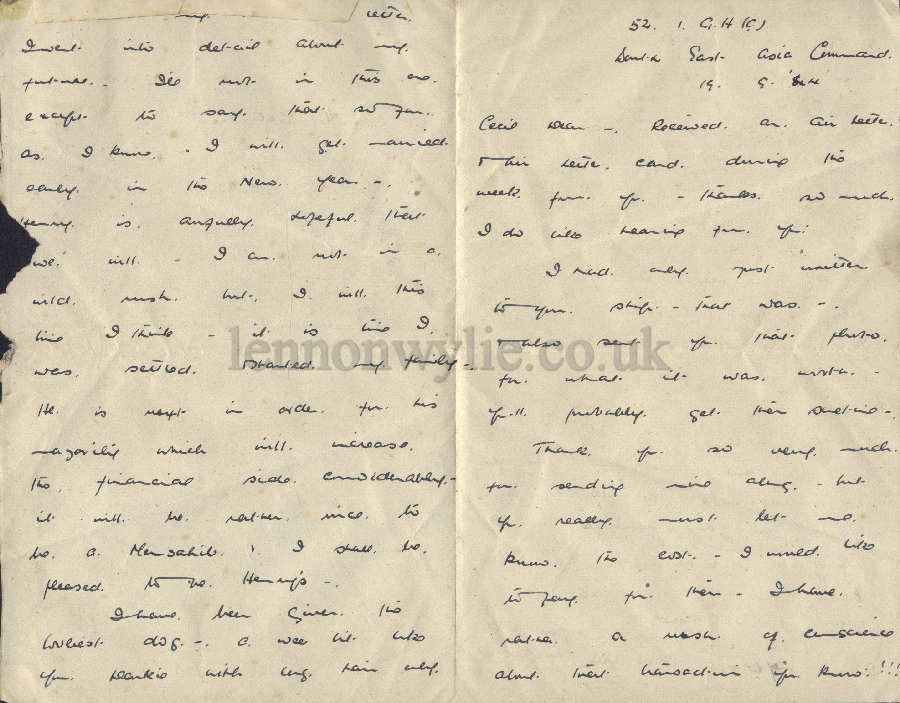 52. I. G.H (C)
South East Asia Command.
19. 9. 44
Cecil Dear -. Received. an. air Letter.
+ Air Letter. Card. during the
week. from. you. - thanks. so much.
I do like hearing from. you.
I had. only. just written
to you. ship. - that was. -.
+ also sent you that photo.
for what it was. worth. -
you'll probably. get them sometime -.
Thank. you. so very. much.
for sending mine along. - but
you. really. must let me.
know. the cost. - I would. like
to pay. for them - I have.
rather. a of conscience
about that transaction you know. !!!
my. letter.
I went into detail about my.
future. - I'll not in this one.
except to say. that so far.
as. I know. - I will. get married.
early. in the New. year -.
Henry. is. awfully. hopeful. that
we. will. - I am. not in a.
wild. rush. but, I will. this
time I think - it is time I.
was. settled. + started. my family -.
He. is next in order. for. his
majority which will. increase.
the. financial side. considerably. -
it will. be. rather. nice. to
be. a. Memsahib. ! I shall. be.
pleased. to be. Henry's -.
I have. been given. the
loveliest dog. -. a. wee bit like
your. with long. hair only.
lennonwylie.co.uk